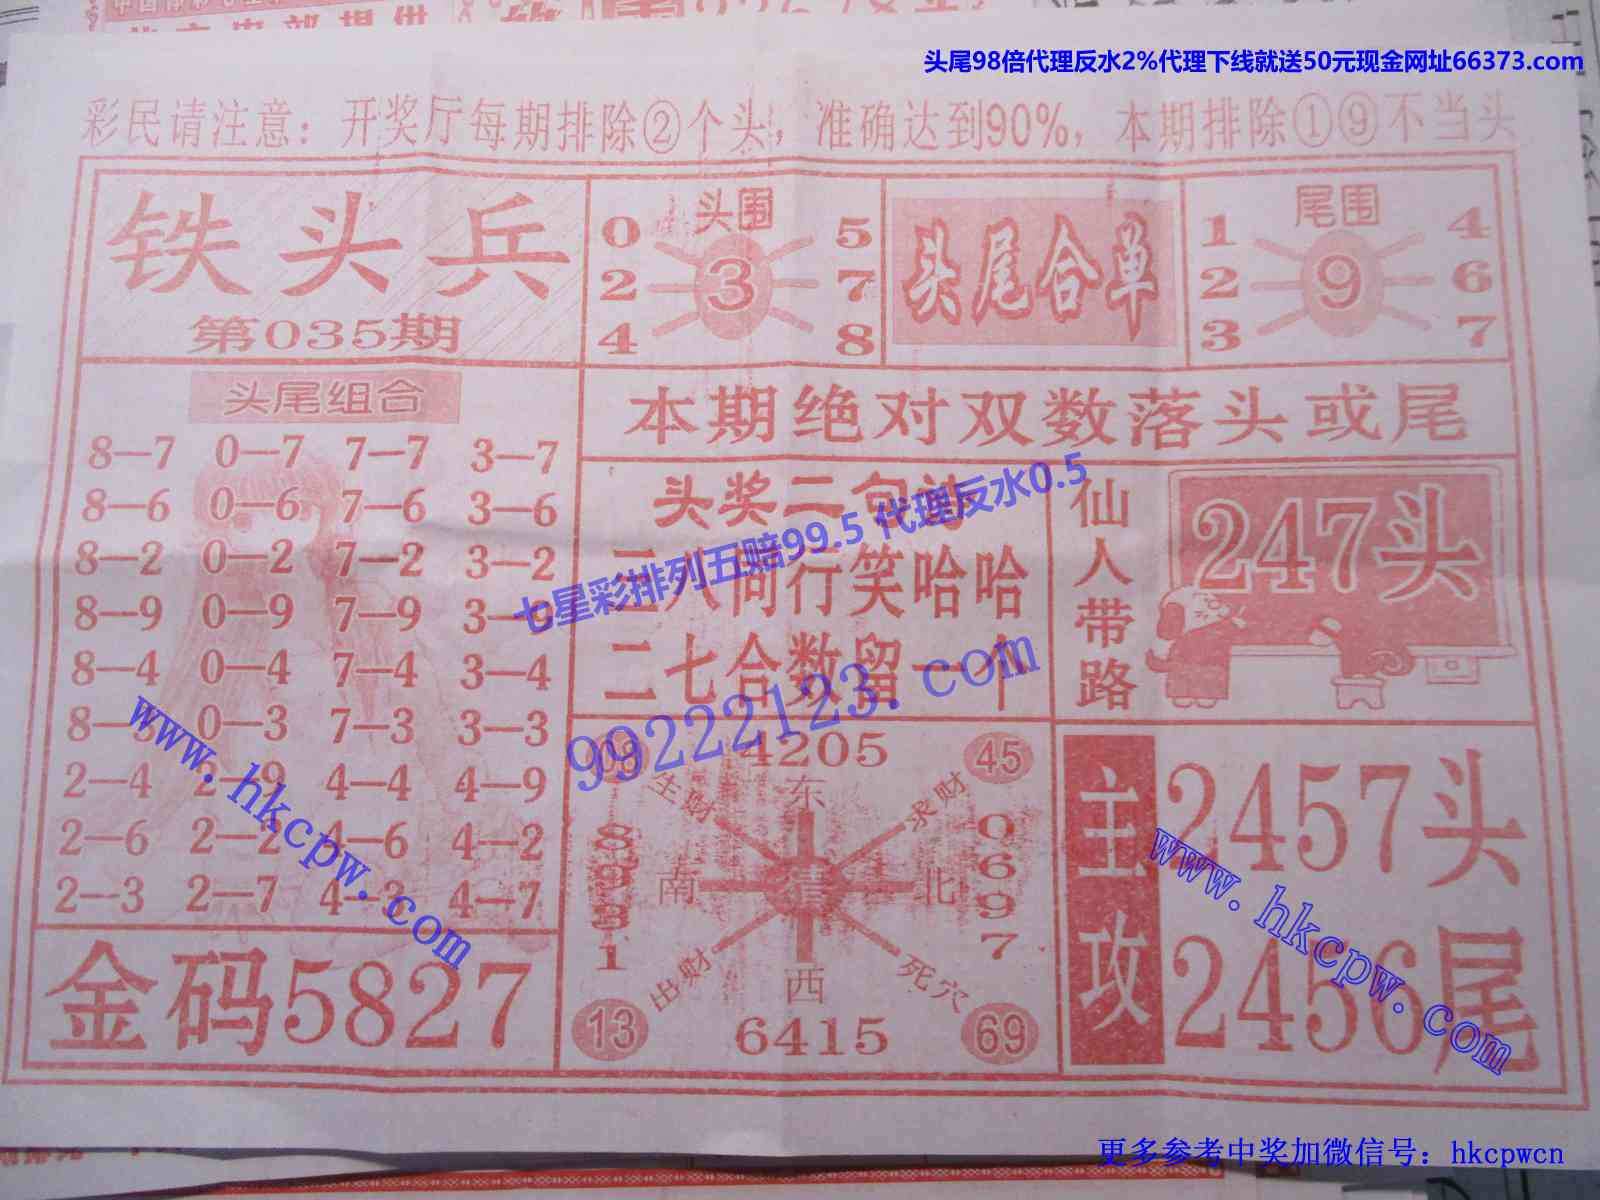 头尾98倍代理反水2%代理下线就送50元现金网址66373.com
彩民请注意：开奖厅每期排除②个头，准确达到90%，本期排除①⑨不当头
铁头兵
第035期
头围
0 5
2 3 7
4 8
头尾合单
尾围
1 4
2 9 6
3 7
头尾组合
8—7 0—7 7—7 3—7
8—6 0—6 7—6 3—6
8—2 0—2 7—2 3—2
8—9 0—9 7—9 3—9
8—4 0—4 7—4 3—4
8— 0—3 7—3 3—3
2—4 2—9 4—4 4—9
2—6 2—2 4—6 4—2
2—3 2—7 4—3 4—7
金码5827
本期绝对双数落头或尾
头奖二句
八同行笑哈哈
二七合数留一个
七星彩排列五赔99.5 代理反水0.5
99222123.com
仙人带路
247头
4205
45
生财
东
求财
8931
南
北
0697
出财
西
死穴
13
6415
69
主攻
2457头
2456尾
www.hkcpw.com
www.hkcpw.com
更多参考中奖加微信号：hkcpwcn